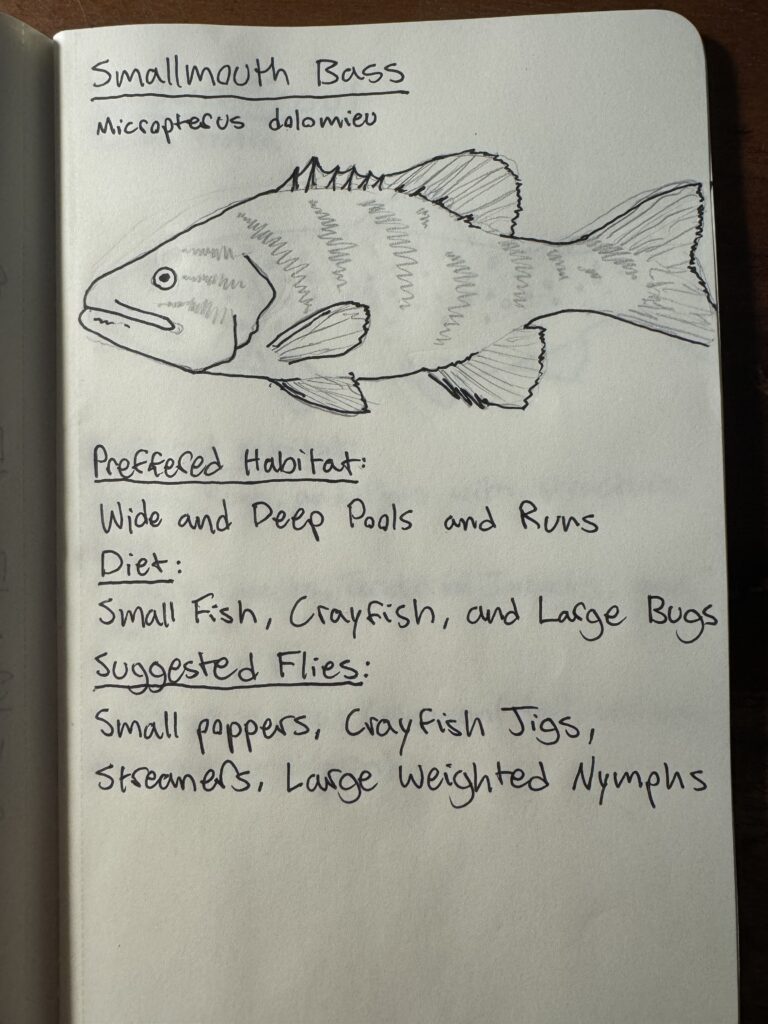 Smallmouth Bass
Micropterus dolomieu
Preffered Habitat:
Wide and Deep Pools and Runs
Diet:
Small Fish, Crayfish, and Large Bugs
Suggested Flies:
Small poppers, Crayfish Jigs,
Streamers, Large Weighted Nymphs